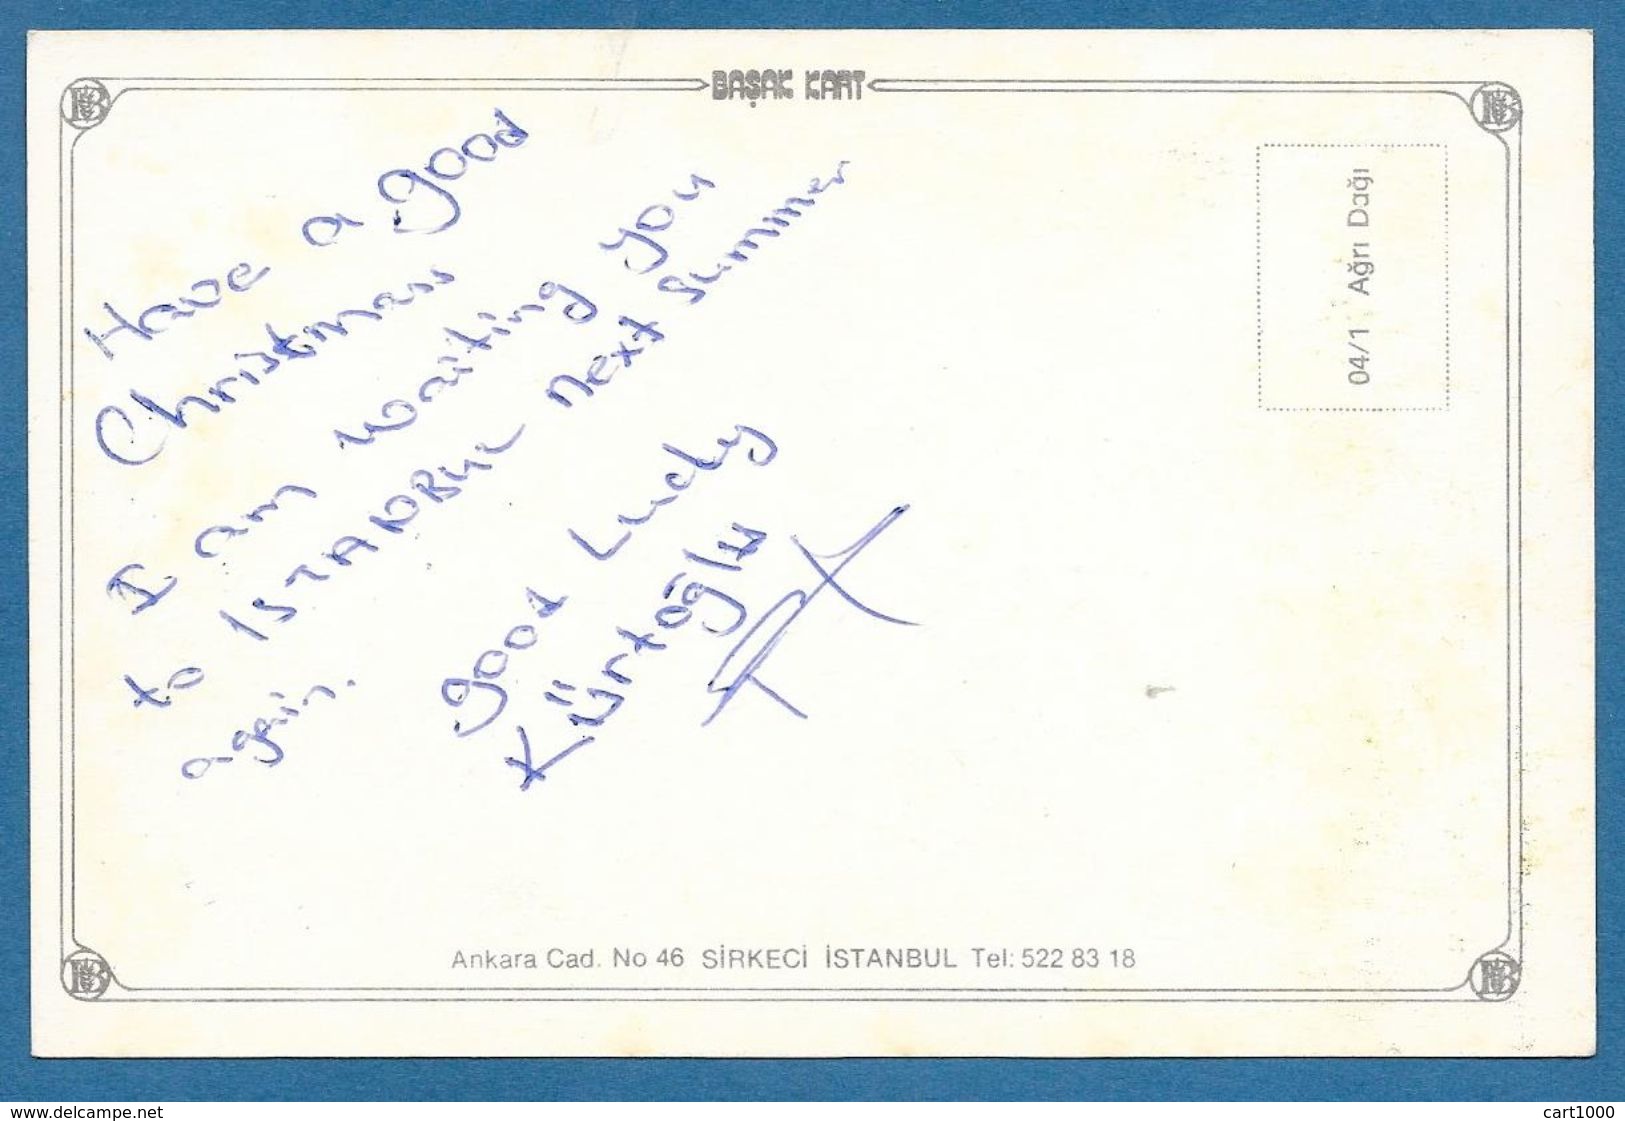 BAŞAK KART
Have a good
Christmass
I am waiting you
to ISTANBUL next summer
again.
good Lucky
Kürtoğlu
04/1 Ağrı Dağı
Ankara Cad. No 46 SİRKECİ İSTANBUL Tel: 522 83 18
www.delcampe.net
cart1000